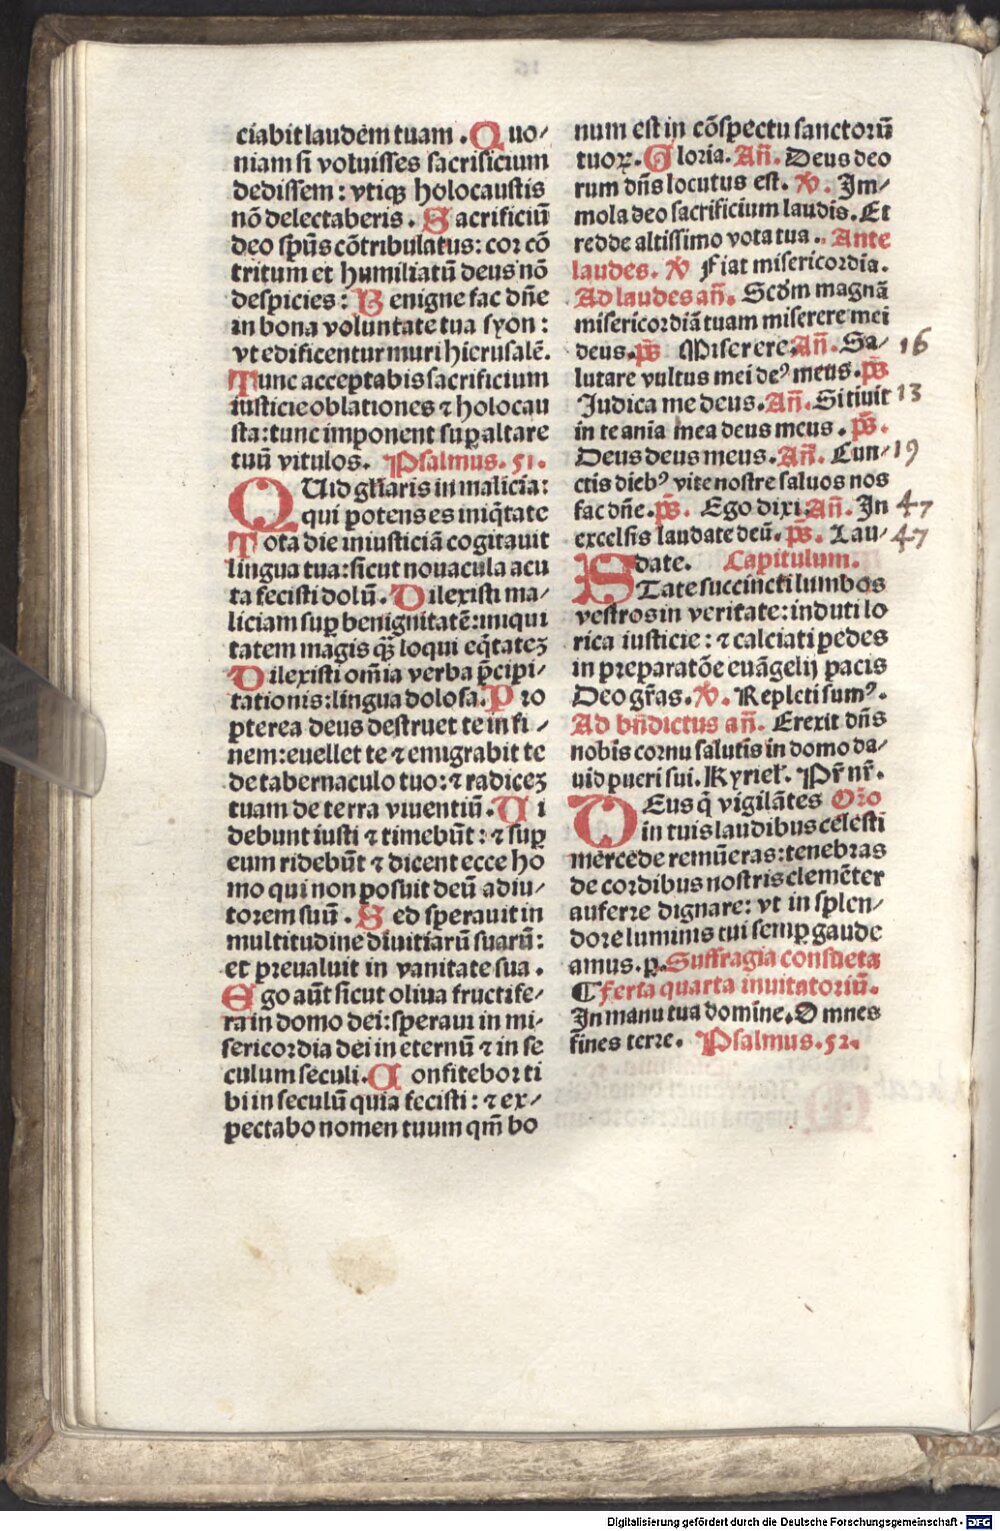 ciabit laudem tuam . Quo/
niam si voluisses sacrificium
dedissem : vtiqꝫ holocaustis
nō delectaberis . Sacrificiū
deo spūs cōtribulatus : cor cō
tritum et humiliatū deus nō
despicies : Benigne fac dn̄e
in bona voluntate tua syon :
vt edificentur muri hierusalē .
Tunc acceptabis sacrificium
iusticie oblationes ⁊ holocau
sta : tunc imponent sup̱ altare
tuū vitulos . Psalmus . 51 .
QUid gl̄iaris in malicia :
qui potens es iniq̇tate
Tota die iniusticiā cogitauit
lingua tua : sicut nouacula acu
ta fecisti dolū . Dilexisti ma/
liciam sup̱ benignitatē : iniqui
tatem magis qꝫ̄ loqui eq̇tateꝫ
Dilexisti om̄ia verba p̄cipi/
tationis : lingua dolosa . Pro
pterea deus destruet te in fi/
nem : euellet te ⁊ emigrabit te
de tabernaculo tuo : ⁊ radiceꝫ
tuam de terra viuentiū . Ui
debunt iusti ⁊ timebūt : ⁊ sup̱
eum ridebūt ⁊ dicent ecce ho
mo qui non posuit deū adiu/
torem suū . Sed sperauit in
multitudine diuitiarū suarū :
et preualuit in vanitate sua .
Ego aūt sicut oliua fructife/
ra in domo dei : speraui in mi/
sericordia dei in eternū ⁊ in se
culum seculi . Confitebor ti
bi in seculū quia fecisti : ⁊ ex/
pectabo nomen tuum qm̄ bo
num est in cōspectu sanctorū
tuoꝝ . Gloria . Añ . Deus deo
rum dn̄s locutus est . ꝟ . Im/
mola deo sacrificium laudis . Et
redde altissimo vota tua . Ante
laudes . ꝟ Fiat misericordia .
Ad laudes añ . Scd̄m magnā
misericordiā tuam miserere mei
deus . p̄s Miserere . Añ . Sa/ 16
lutare vultus mei deꝰ meus . p̄s
Iudica me deus . Añ . Sitiuit 13
in te anīa mea deus meus . p̄s .
Deus deus meus . Añ . Cun/ 19
ctis diebꝰ vite nostre saluos nos
fac dn̄e . p̄s . Ego dixi . Añ . In 47
excelsis laudate deū . p̄s . Lau/ 47
date . Capitulum .
STate succincti lumbos
vestros in veritate : induti lo
rica iusticie : ⁊ calciati pedes
in preparatōe euāgelij pacis
Deo gr̄as . ꝟ . Repleti sumꝰ .
Ad bn̄dictus añ . Erexit dn̄s
nobis cornu salutis in domo da/
uid pueri sui . Kyriel̄ . Pr̄ nr̄ .
DEus q̇ vigilātes Or̄o
in tuis laudibus celesti
mercede remūeras : tenebras
de cordibus nostris clemēter
auferre dignare : vt in splen/
dore luminis tui semp̱ gaude
amus . p̱ . Suffragia consueta
¶ feria quarta inuitatoriū .
In manu tua domīne . Omnes
fines terre . Psalmus . 52 .
Digitalisierung gefördert durch die Deutsche Forschungsgemeinschaft - DFG